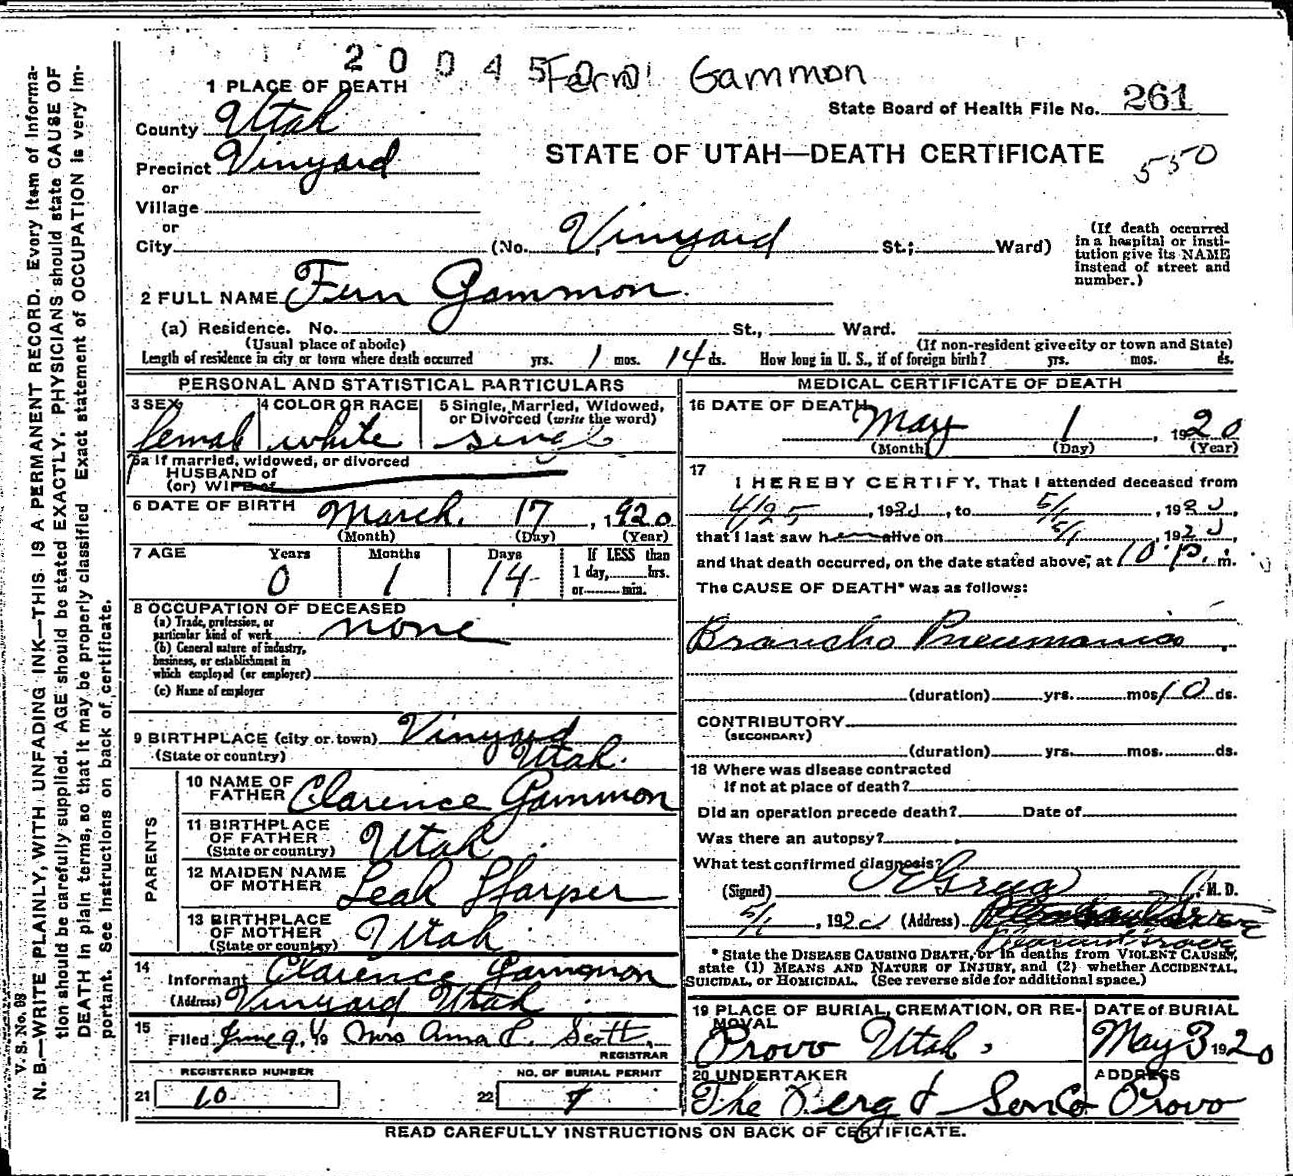 2 0 0 4 5 0
Fern Gammon
1 PLACE OF DEATH
State Board of Health File No. 261
County Utah
STATE OF UTAH—DEATH CERTIFICATE
550
Precinct Vinyard
or
Village
or
City (No. Vinyard St.; Ward)
(If death occurred
in a hospital or insti-
tution give its NAME
instead of street and
number.)
2 FULL NAME Fern Gammon
(a) Residence. No. St., Ward.
(Usual place of abode) (If non-resident give city or town and State)
Length of residence in city or town where death occurred yrs. 1 mos. 14 ds. How long in U. S., if of foreign birth? yrs. mos. ds.
PERSONAL AND STATISTICAL PARTICULARS
3 SEX 4 COLOR OR RACE 5 Single, Married, Widowed,
or Divorced (write the word)
femal white singl
5a If married, widowed, or divorced
HUSBAND of
(or) WIFE of
6 DATE OF BIRTH March 17, 1920
(Month) (Day) (Year)
7 AGE Years Months Days If LESS than
0 1 14 1 day, hrs.
or min.
8 OCCUPATION OF DECEASED
(a) Trade, profession, or
particular kind of work none
(b) General nature of industry,
business, or establishment in
which employed (or employer)
(c) Name of employer
9 BIRTHPLACE (city or town) Vinyard
(State or country) Utah.
PARENTS
10 NAME OF
FATHER Clarence Gammon
11 BIRTHPLACE
OF FATHER
(State or country) Utah
12 MAIDEN NAME
OF MOTHER Leah Harper
13 BIRTHPLACE
OF MOTHER
(State or country) Utah
14
Informant Clarence Gammon
(Address) Vinyard Utah
15
Filed June 9, Mrs Anna L. Scott,
REGISTRAR
REGISTERED NUMBER NO. OF BURIAL PERMIT
21 10 22 9
MEDICAL CERTIFICATE OF DEATH
16 DATE OF DEATH
May 1, 1920
(Month) (Day) (Year)
17
I HEREBY CERTIFY, That I attended deceased from
4/25, 1920, to 5/1, 1920,
that I last saw h alive on 5/1, 1920,
and that death occurred, on the date stated above, at 10 p. m.
The CAUSE OF DEATH* was as follows:
Broncho Pneumonia
(duration) yrs. mos 10 ds.
CONTRIBUTORY
(SECONDARY)
(duration) yrs. mos. ds.
18 Where was disease contracted
if not at place of death?
Did an operation precede death? Date of
Was there an autopsy?
What test confirmed diagnosis?
(Signed) M. D.
5/1, 1920 (Address)
* State the DISEASE CAUSING DEATH, or in deaths from VIOLENT CAUSES,
state (1) MEANS AND NATURE OF INJURY, and (2) whether ACCIDENTAL,
SUICIDAL, or HOMICIDAL. (See reverse side for additional space.)
19 PLACE OF BURIAL, CREMATION, OR RE-
MOVAL
Provo Utah.
DATE of BURIAL
May 3 1920
20 UNDERTAKER
The Berg & Sons Co
ADDRESS
Provo
READ CAREFULLY INSTRUCTIONS ON BACK OF CERTIFICATE.
V. S. No. 98
N. B.—WRITE PLAINLY, WITH UNFADING INK—THIS IS A PERMANENT RECORD. Every item of informa-
tion should be carefully supplied. AGE should be stated EXACTLY. PHYSICIANS should state CAUSE OF
DEATH in plain terms, so that it may be properly classified. Exact statement of OCCUPATION is very im-
portant. See instructions on back of certificate.